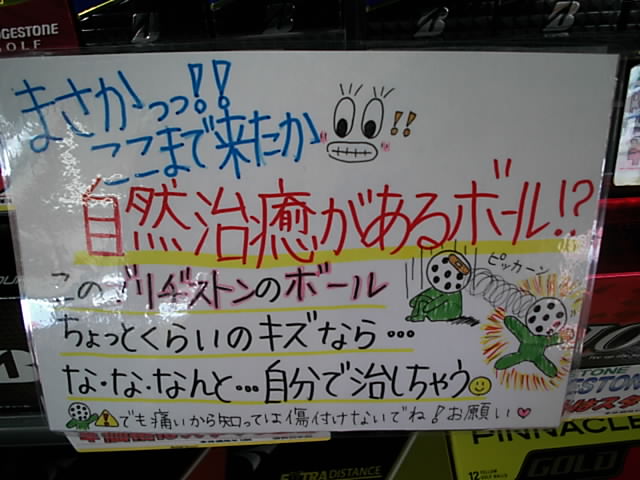 DGESTONE
OLF
まさかっっ!!
ここまで来たか!!
自然治癒があるボール!?
ピッカーン
このブリヂストンのボール
ちょっとくらいのキズなら…
な・な・なんと…自分で治しちゃう
でも痛いから知っては傷付けないでね!お願い♡
STONE
GESTONE
PINNACLE
GOLD
EXTRA DISTANCE
12 YELLOW GOLF BALLS